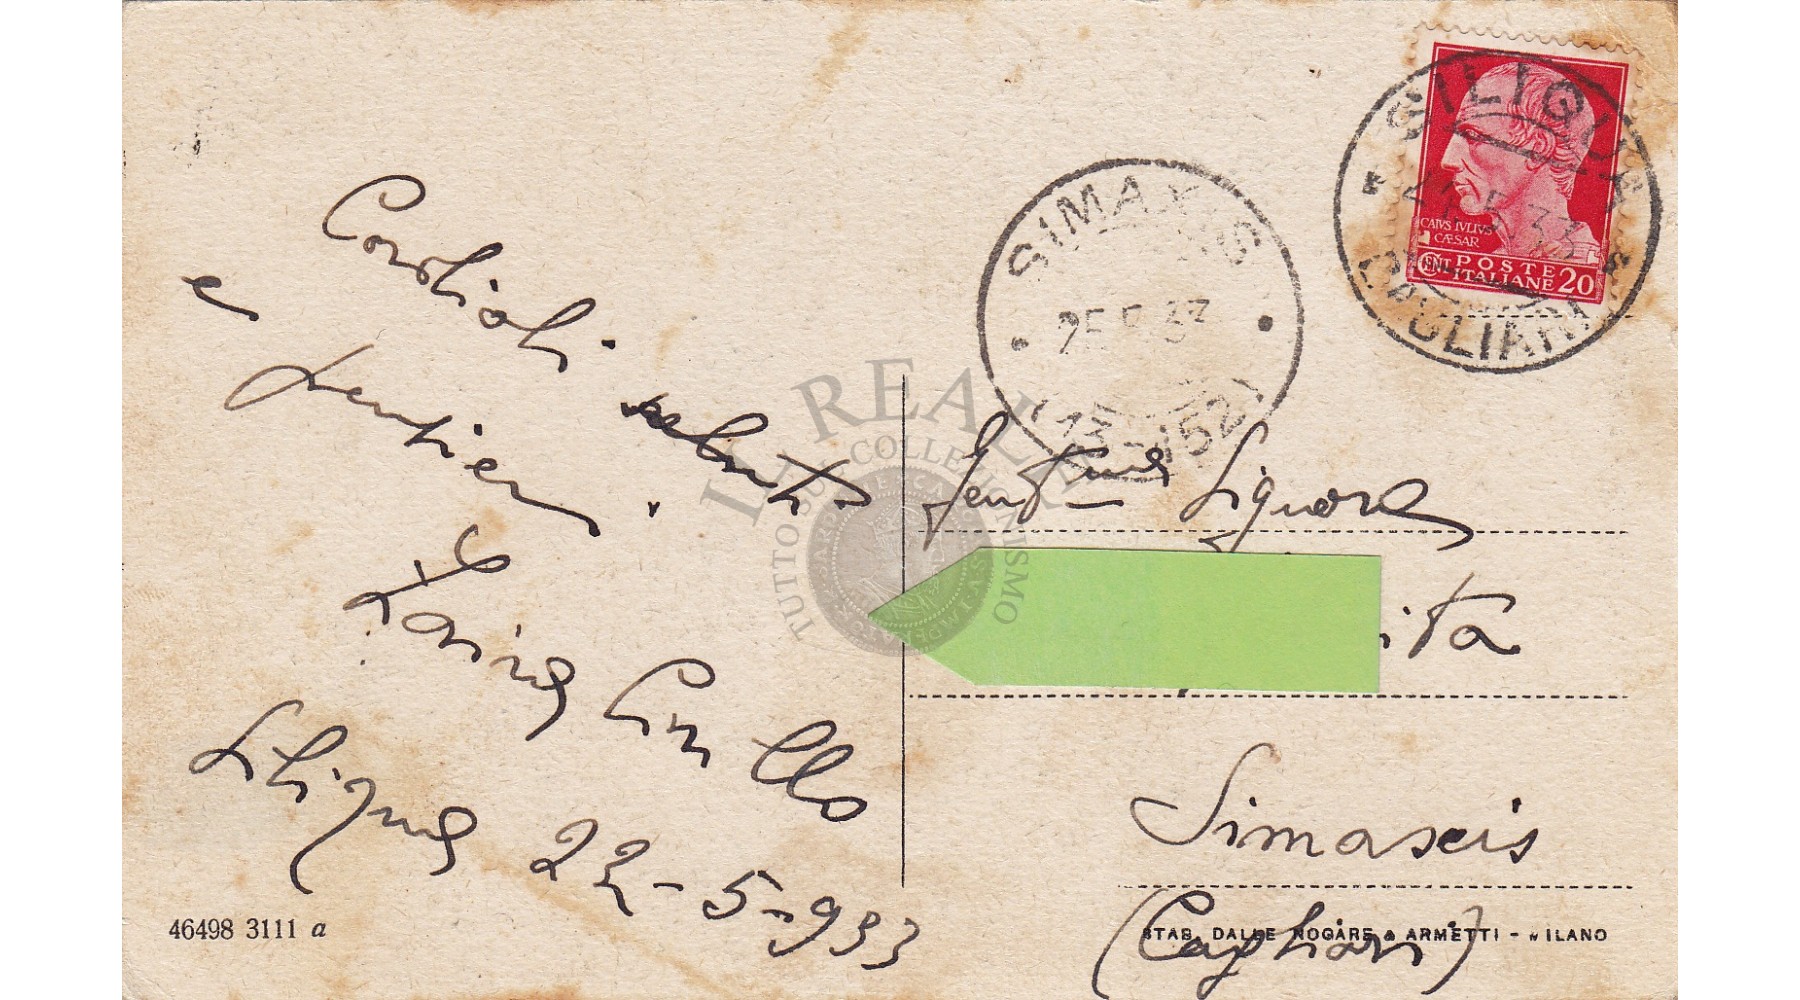 Cordiali saluti
e pensieri.
Siliqua 22-5-933
46498 3111 a
SIMAXIS
25.5.33
(13-152)
SILIQUA
24.5.33
CAGLIARI
CAIVS IVLIVS
CÆSAR
POSTE
ITALIANE 20
Gent.ma Signora
ita
Simaxis
(Cagliari)
STAB. DALLE NOGARE & ARMETTI - MILANO
IL REALE
TUTTO SUL COLLEZIONISMO